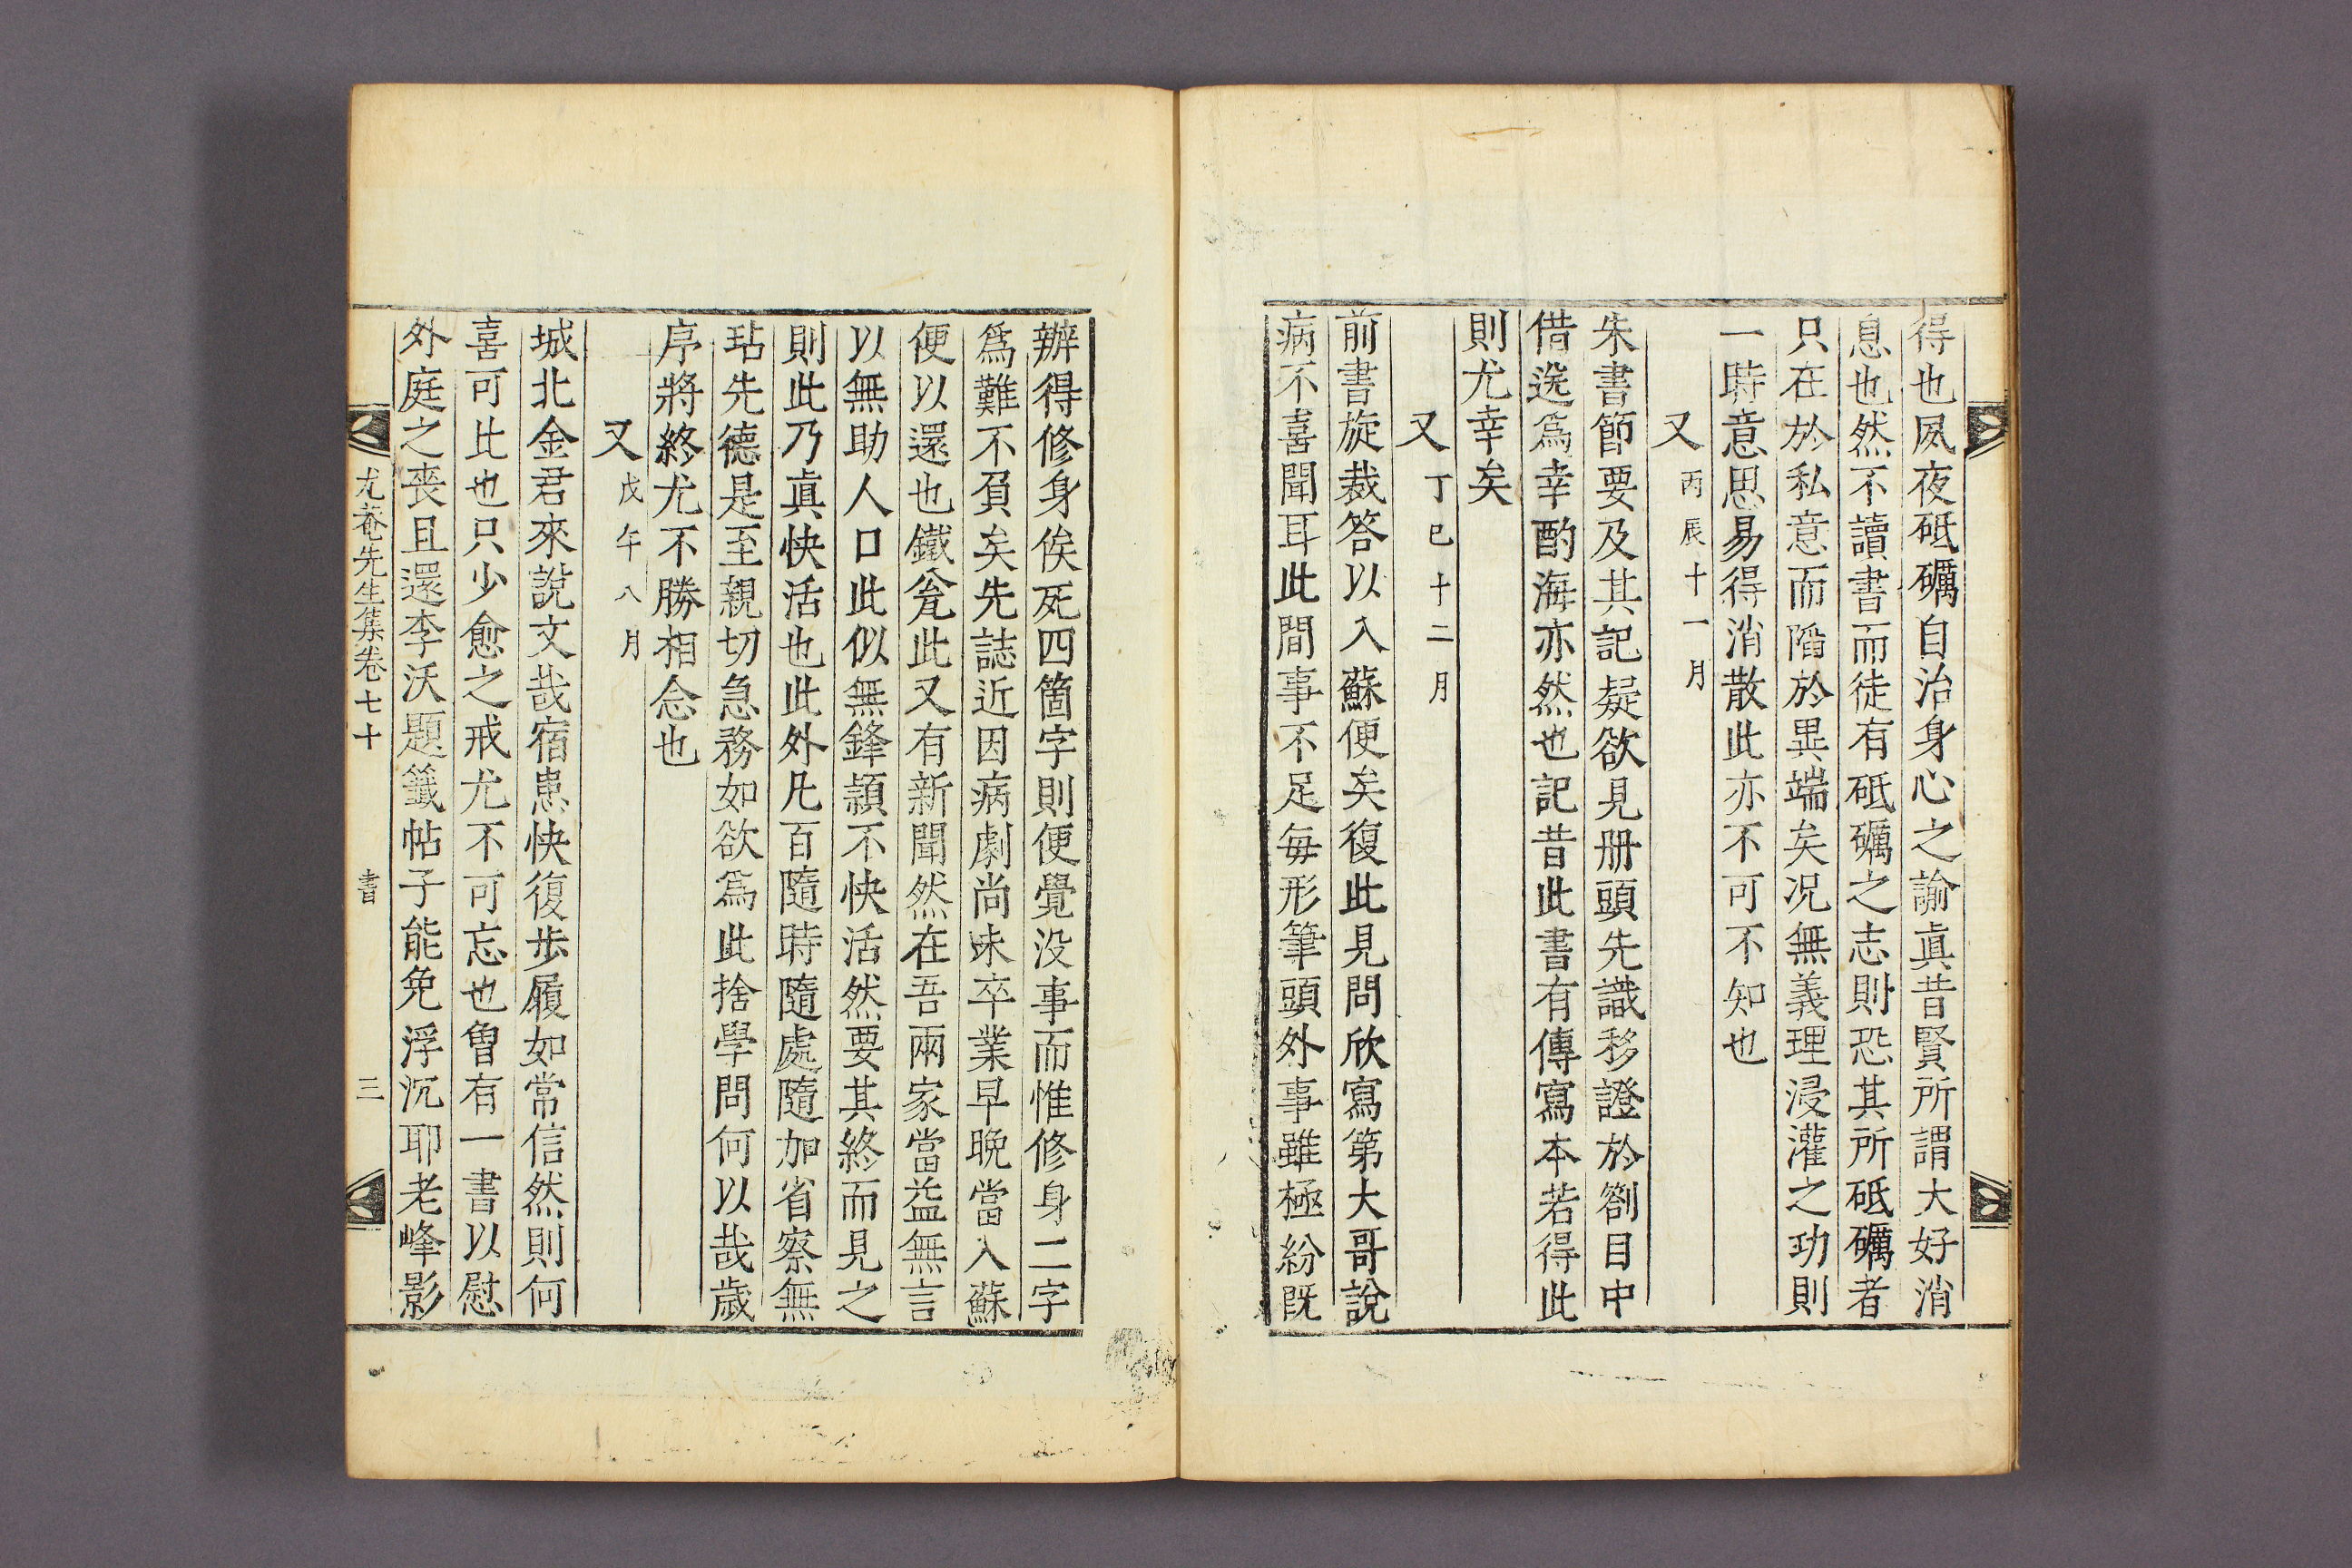 得也夙夜砥礪自治身心之諭眞昔賢所謂大好消
息也然不讀書而徒有砥礪之志則恐其所砥礪者
只在於私意而陷於異端矣况無義理浸灌之功則
一時意思易得消散此亦不可不知也
又丙辰十一月
朱書節要及其記疑欲見册頭先識移證於劄目中
借送爲幸酌海亦然也記昔此書有傳寫本若得此
則尤幸矣
又丁巳十二月
前書旋裁答以入蘇便矣復此見問欣寫第大哥說
病不喜聞耳此間事不足每形筆頭外事雖極紛旣
辦得修身俟死四箇字則便覺没事而惟修身二字
爲難不負矣先誌近因病劇尚未卒業早晩當入蘇
便以還也鐵瓮此又有新聞然在吾兩家當益無言
以無助人口此似無鋒頴不快活然要其終而見之
則此乃眞快活也此外凡百隨時隨處隨加省察無
玷先德是至親切急務如欲爲此捨學問何以哉歲
序將終尤不勝相念也
又戊午八月
城北金君來說文哉宿患快復歩履如常信然則何
喜可比也只少愈之戒尤不可忘也曾有一書以慰
外庭之喪且還李沃題籤帖子能免浮沉耶老峰影
尤菴先生集卷七十 書 三